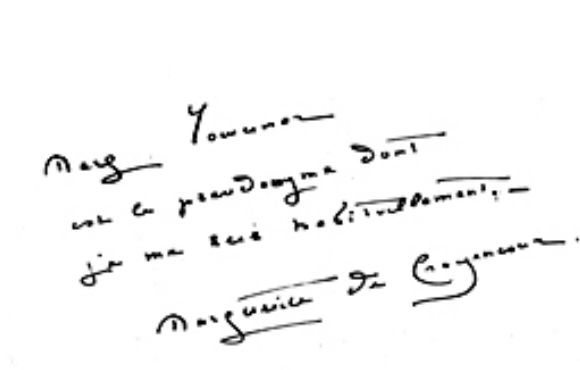 Marg Yourcenar
est le pseudonyme dont
je me sers habituellement. –
Marguerite de Crayencour.